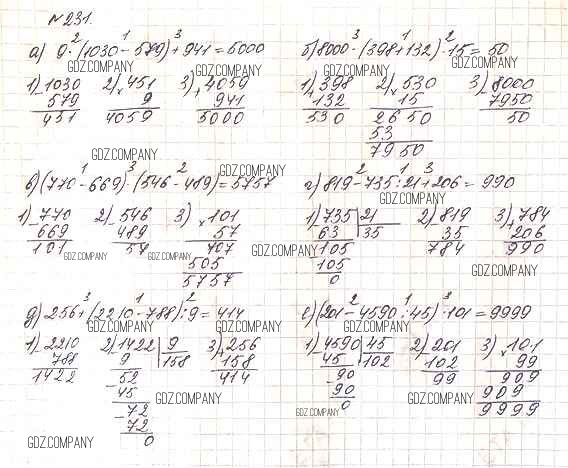 № 231.
а) 9·(1030-579)+941=5000
2 1 3
GDZ.COMPANY
1) 1030
- 579
451
2) 451
× 9
4059
3) 4059
+ 941
5000
б) 8000-(398+132)·15=50
3 1 2
GDZ.COMPANY
GDZ.COMPANY
1) 398
+ 132
530
2) 530
× 15
2650
53
7950
3) 8000
- 7950
50
GDZ.COMPANY
в) (770-669)·(546-489)=5757
1 3 2
GDZ.COMPANY
1) 770
- 669
101
2) 546
- 489
57
3) 101
× 57
707
505
5757
GDZ.COMPANY
GDZ.COMPANY
г) 819-735:21+206=990
2 1 3
GDZ.COMPANY
1) 735 21
63 35
105
105
0
2) 819
- 35
784
3) 784
+ 206
990
GDZ.COMPANY
GDZ.COMPANY
д) 256+(2210-788):9=414
3 1 2
GDZ.COMPANY
1) 2210
- 788
1422
2) 1422 9
9 158
52
- 45
72
- 72
0
3) 256
+ 158
414
GDZ.COMPANY
GDZ.COMPANY
е) (201-4590:45)·101=9999
2 1 3
GDZ.COMPANY
1) 4590 45
45 102
90
- 90
0
2) 201
- 102
99
3) 101
× 99
909
909
9999
GDZ.COMPANY
GDZ.COMPANY